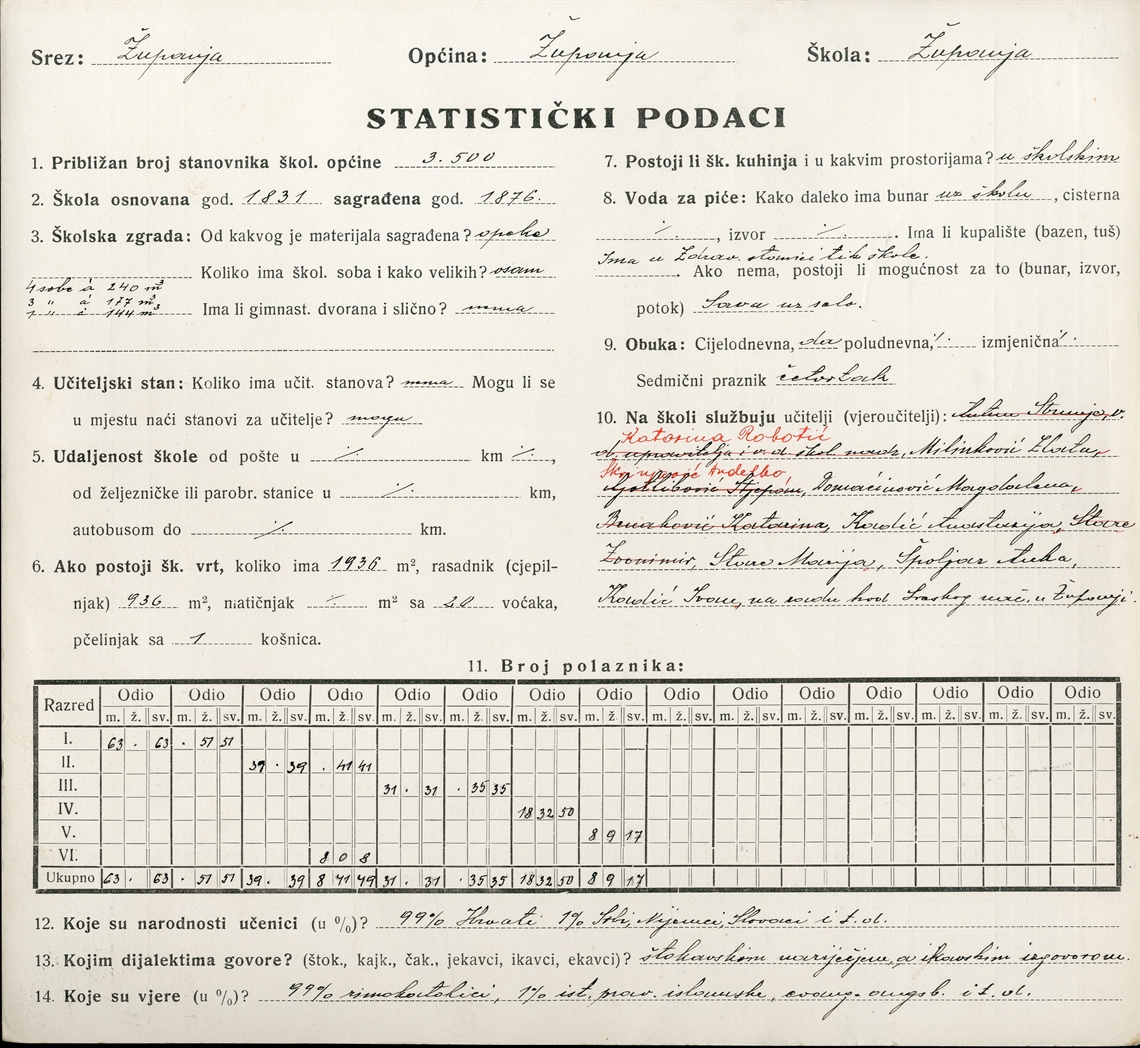 Srez: Županja Općina: Županja Škola: Županja
STATISTIČKI PODACI
1. Približan broj stanovnika škol. općine 3.500
2. Škola osnovana god. 1831 sagrađena god. 1876.
3. Školska zgrada: Od kakvog je materijala sagrađena? opeke
Koliko ima škol. soba i kako velikih? osam
4 sobe á 240 m³
3 " á 177 m³
1 " á 144 m³ Ima li gimnast. dvorana i slično? nema
4. Učiteljski stan: Koliko ima učit. stanova? nema Mogu li se
u mjestu naći stanovi za učitelje? mogu
5. Udaljenost škole od pošte u ·/· km ·/·,
od željezničke ili parobr. stanice u ·/· km,
autobusom do ·/· km.
6. Ako postoji šk. vrt, koliko ima 1936 m², rasadnik (cjepil-
njak) 936 m², matičnjak ·/· m² sa 20 voćaka,
pčelinjak sa 1 košnica.
7. Postoji li šk. kuhinja i u kakvim prostorijama? u školskim
8. Voda za piće: Kako daleko ima bunar uz školu, cisterna
·/·, izvor ·/·. Ima li kupalište (bazen, tuš)
Ima u Zdrav. stanici tik škole.
Ako nema, postoji li mogućnost za to (bunar, izvor,
potok) Sava uz selo.
9. Obuka: Cjelodnevna, da poludnevna, ·/· izmjenična ·/·
Sedmični praznik četvrtak
10. Na školi službuju učitelji (vjeroučitelji):
Katarina Robotić
d. upravitelja i v. d. škol. nadz, Milinković Zlata,
Anđelko
Stjepan, Domaćinović Magdalena,
Katarina, Kadić Anastazija, Stare
Zvonimir, Stare Marija, Špoljar Anka,
Kadić Ivan, na radu kod Sreskog nač. u Županji.
11. Broj polaznika:
Razred Odio Odio Odio Odio Odio Odio Odio Odio Odio Odio Odio Odio Odio Odio Odio
m. ž. sv. m. ž. sv. m. ž. sv. m. ž. sv. m. ž. sv. m. ž. sv. m. ž. sv. m. ž. sv. m. ž. sv. m. ž. sv. m. ž. sv. m. ž. sv. m. ž. sv. m. ž. sv. m. ž. sv.
I. 63 . 63 . 51 51
II. 39 . 39 . 41 41
III. 31 . 31 . 35 35
IV. 18 32 50
V. 8 9 17
VI. 8 0 8
Ukupno 63 . 63 . 51 51 39 . 39 8 41 49 31 . 31 . 35 35 18 32 50 8 9 17
12. Koje su narodnosti učenici (u %)? 99% Hrvati 1% Srbi, Nijemci, Slovaci i t. d.
13. Kojim dijalektima govore? (štok., kajk., čak., jekavci, ikavci, ekavci)? štokavskom narječjem, a ikavskim izgovorom.
14. Koje su vjere (u %)? 99% rimokatolici, 1% ist. prav. islamske, evang. augsb. i t. d.